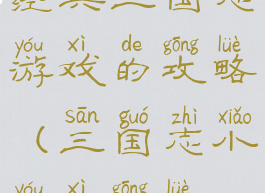 经典三国志
yóu xì de gōng lüè
游戏的攻略
sān guó zhì xiǎo
（三国志小
yóu xì gōng lüè